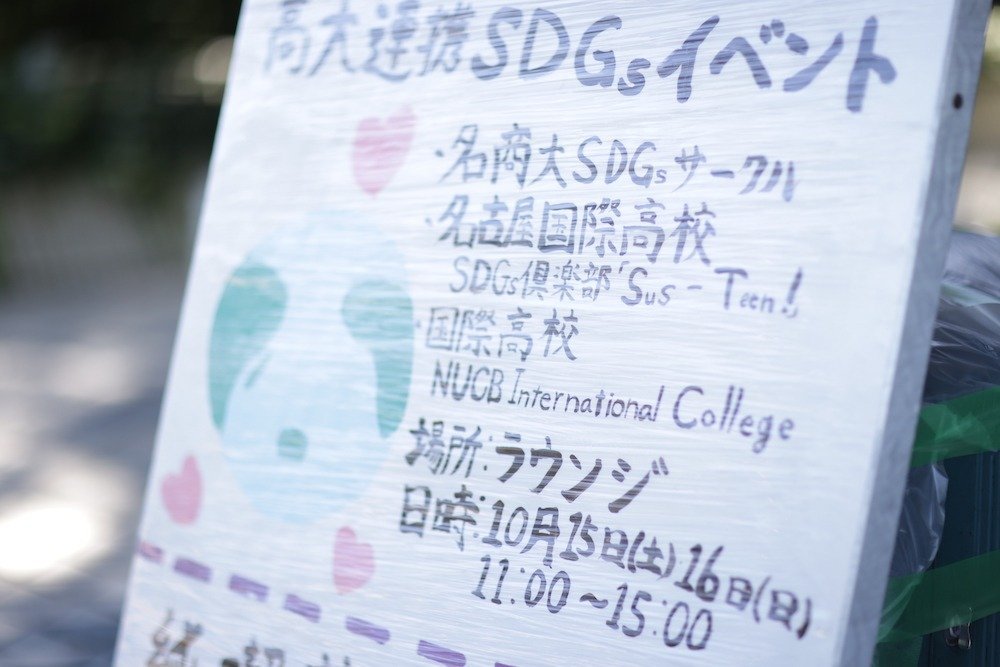 高大連携SDGsイベント
・名商大SDGsサークル
・名古屋国際高校
SDGs倶楽部「Sus-Teen!
・国際高校
NUCB International College
場所:ラウンジ
日時:10月15日(土)16日(日)
11:00~15:00